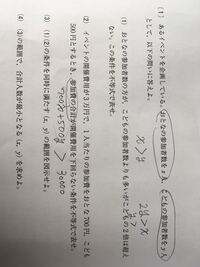 〔1〕 あるイベントを企画している。おとなの参加者数を x 人、こどもの参加者数を y 人
として、以下の問いに答えよ。
(1) おとなの参加者数の方が、こどもの参加者数よりも多いがこどもの 2 倍は超え
ない。この条件を不等式で表せ。
x>y
2y>x
(2) イベントの開催費用が 3 万円で、1 人当たりの参加費をおとな 700 円、こども
500 円とするとき、参加費の合計が開催費用を下回らない条件を不等式で表せ。
700x+500y > 30000
(3) (1)(2)の条件を同時に満たす (x, y) の範囲を図示せよ。
(4) (3)の範囲で、合計人数が最小となる (x, y) を求めよ。